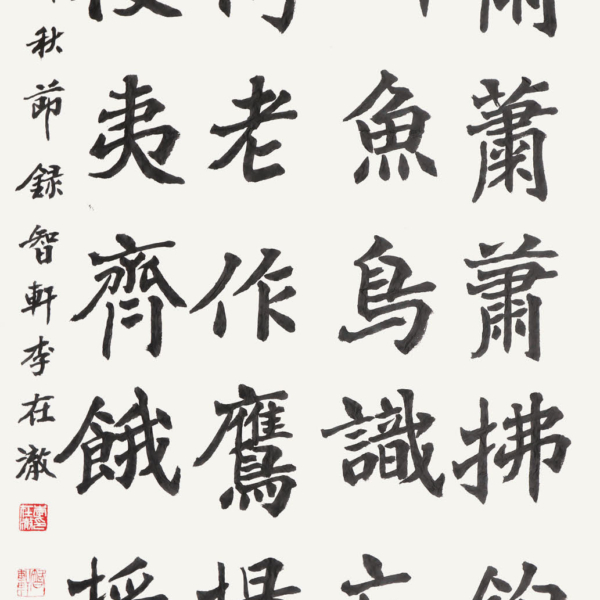 蕭蕭拂
魚鳥識
老作鷹
夷齊餓
秋節録智軒李在澈